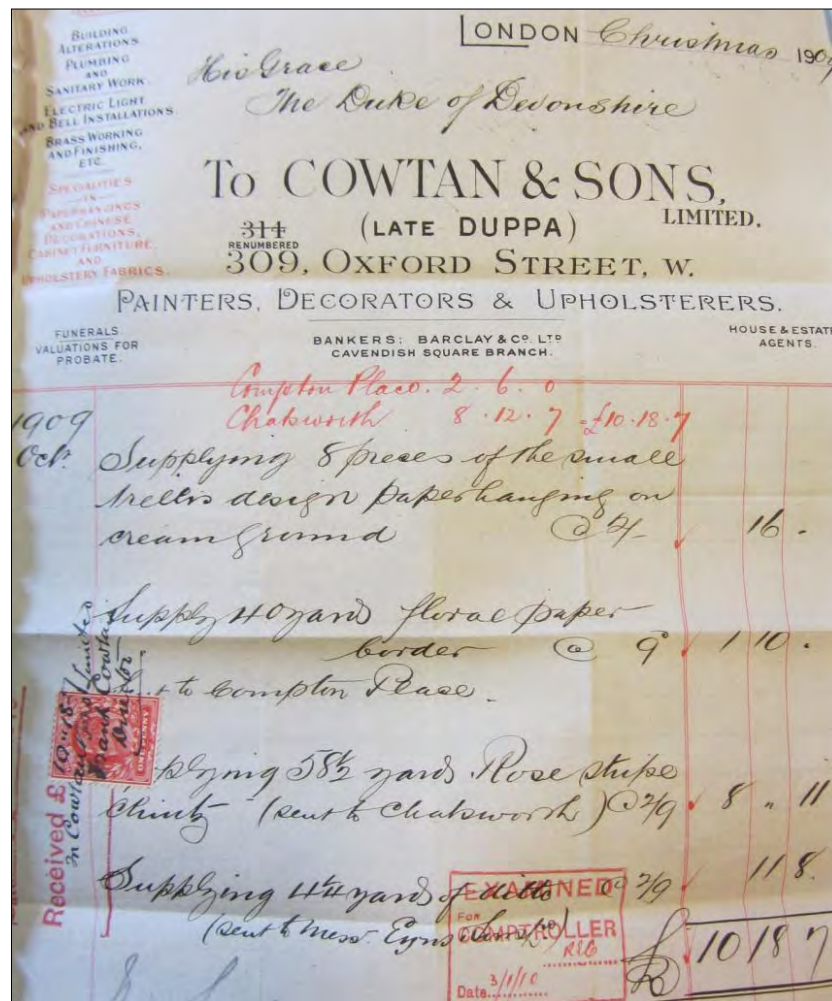 BUILDING
ALTERATIONS.
PLUMBING
AND
SANITARY WORK.
ELECTRIC LIGHT
AND BELL INSTALLATIONS.
BRASS WORKING
AND FINISHING,
ETC.
SPECIALITIES
—IN—
PAPERHANGINGS
AND CHINESE
DECORATIONS,
CABINET FURNITURE,
AND
UPHOLSTERY FABRICS.
LONDON Christmas 1909
His Grace
The Duke of Devonshire
To COWTAN & SONS,
LIMITED.
(LATE DUPPA)
314
RENUMBERED
309, OXFORD STREET, W.
PAINTERS, DECORATORS & UPHOLSTERERS.
FUNERALS.
VALUATIONS FOR
PROBATE.
BANKERS: BARCLAY & Co. LTD
CAVENDISH SQUARE BRANCH.
HOUSE & ESTATE
AGENTS.
Compton Place. 2. 6. 0
Chatsworth 8. 12. 7 = £10. 18. 7
1909
Octr. Supplying 8 pieces of the small
trellis design paperhanging on
cream ground @ 2/- 16 -
Supply 40 yards floral paper
border @ 9d 1 10 .
to Compton Place.
plying 58½ yards Rose stripe
Chintz (sent to Chatsworth) @ 2/9 8 " 11
Supplying 4¼ yards of ditto @ 2/9 11 8.
(sent to Mess.
£10 18 7
Received £ 10-18-7
In Cowtan & Sons Limited
Frank Cowtan
Director
ONE PENNY
EXAMINED
FOR
COMPTROLLER
Date 3/1/10